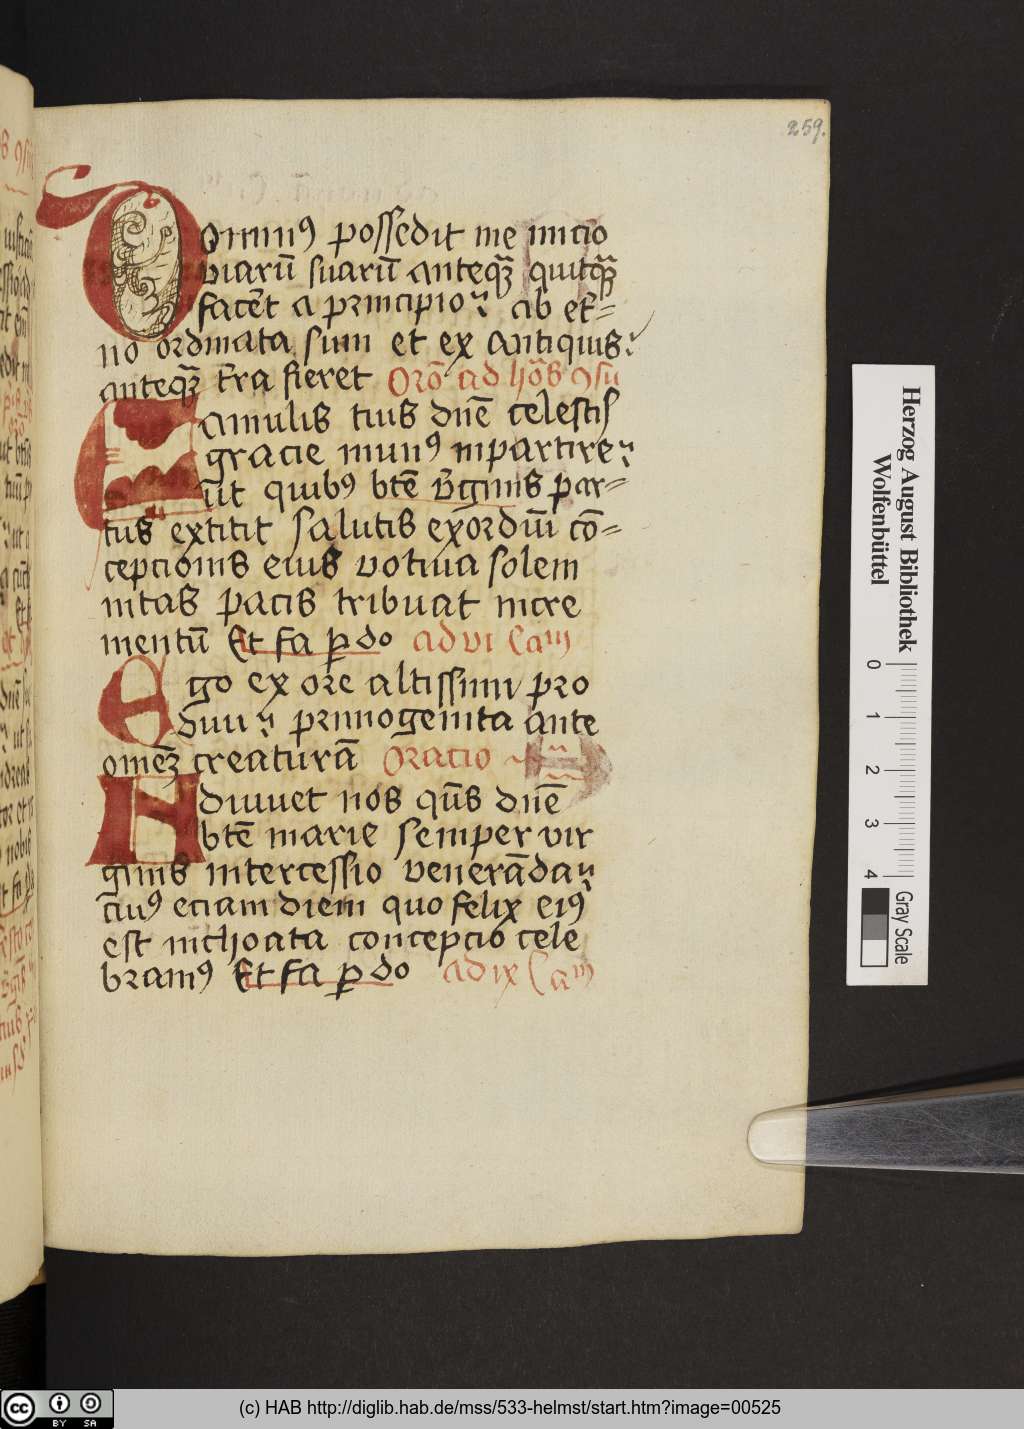 259.
Dominꝰ possedit me inicio
viarū suarū anteqꝫ̄ quitqꝫ̄
facēt a principio ab et̄=
no ordinata sum et ex antiquis
anteqꝫ̄ t̄ra fieret Orō ad hōs ꝯsu
Famulis tuis dn̄e celestis
gracie munꝰ inpartire
ut quibꝰ btē v̄ginis par=
tus extitit salutis exordiū cō=
cepcionis eius votiua solem
nitas pacis tribuat incre
mentū Et fa ꝑ do ad vi cam
Ego ex ore altissimi pro
diui primogenita ante
omēꝫ creaturā Oracio
Adiuuet nos qūs dn̄e
btē marie semper vir
ginis intercessio venerāda
cuiꝰ eciam diem quo felix eiꝰ
est inchoata concepcio cele
bramꝰ Et fa ꝑ do ad ix cam
Herzog August Bibliothek
Wolfenbüttel
0 1 2 3 4
Gray Scale
cc BY SA
(c) HAB http://diglib.hab.de/mss/533-helmst/start.htm?image=00525